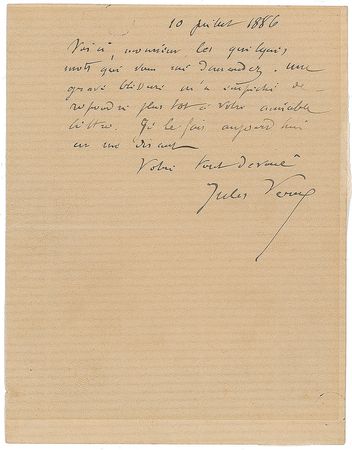 10 juillet 1886
Voici, monsieur les quelques
mots que vous me demandez. une
grave blessure m'a empêché de
répondre plus tôt à votre aimable
lettre. Je le fais aujourd'hui
en me disant
Votre tout dévoué
Jules Verne